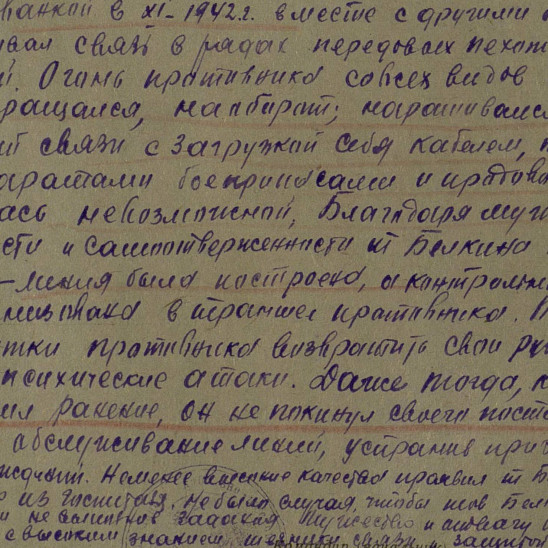 в XI-1942 г. вместе с другими
связь в рядах передовых пехот
й. Огонь противника со всех видов
ращался, наоборот, наращивался
связи с загрузкой себя кабелем,
аратами боеприпасами и продов
лась невозможной, Благодаря муж
сти и самоотверженности т Белкина
линия была построена, а контрольн
низована в траншее противника.
тки противника возвратить свои ру
психические атаки. Даже тогда, к
ил ранение, он не покинул своего пост
обслуживание линий, устранив при
Неменее высокие качества проявил т Б
из госпиталя. Не было случая, чтобы тов Бел
и не выполнив задания. Мужество и отвагу
с высоким знанием техники связи,